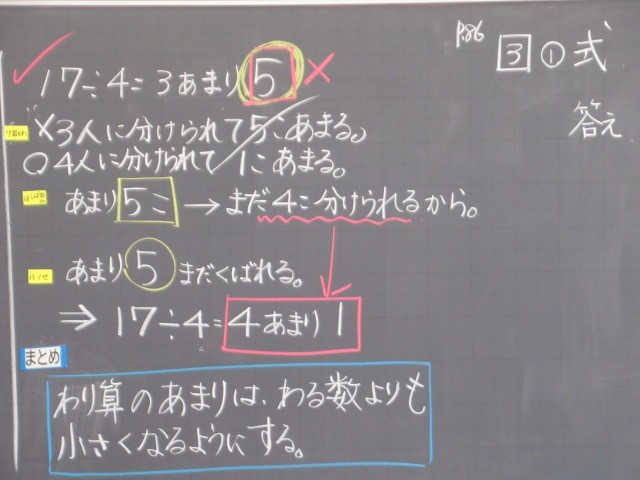 17÷4=3あまり5×
×3人に分けられて5こあまる。
○4人に分けられて1こあまる。
あまり5こ→まだ4こ分けられるから。
あまり5まだくばれる。
⇒17÷4=4あまり1
まとめ
わり算のあまりは、わる数よりも
小さくなるようにする。
P.86
3①式
答え